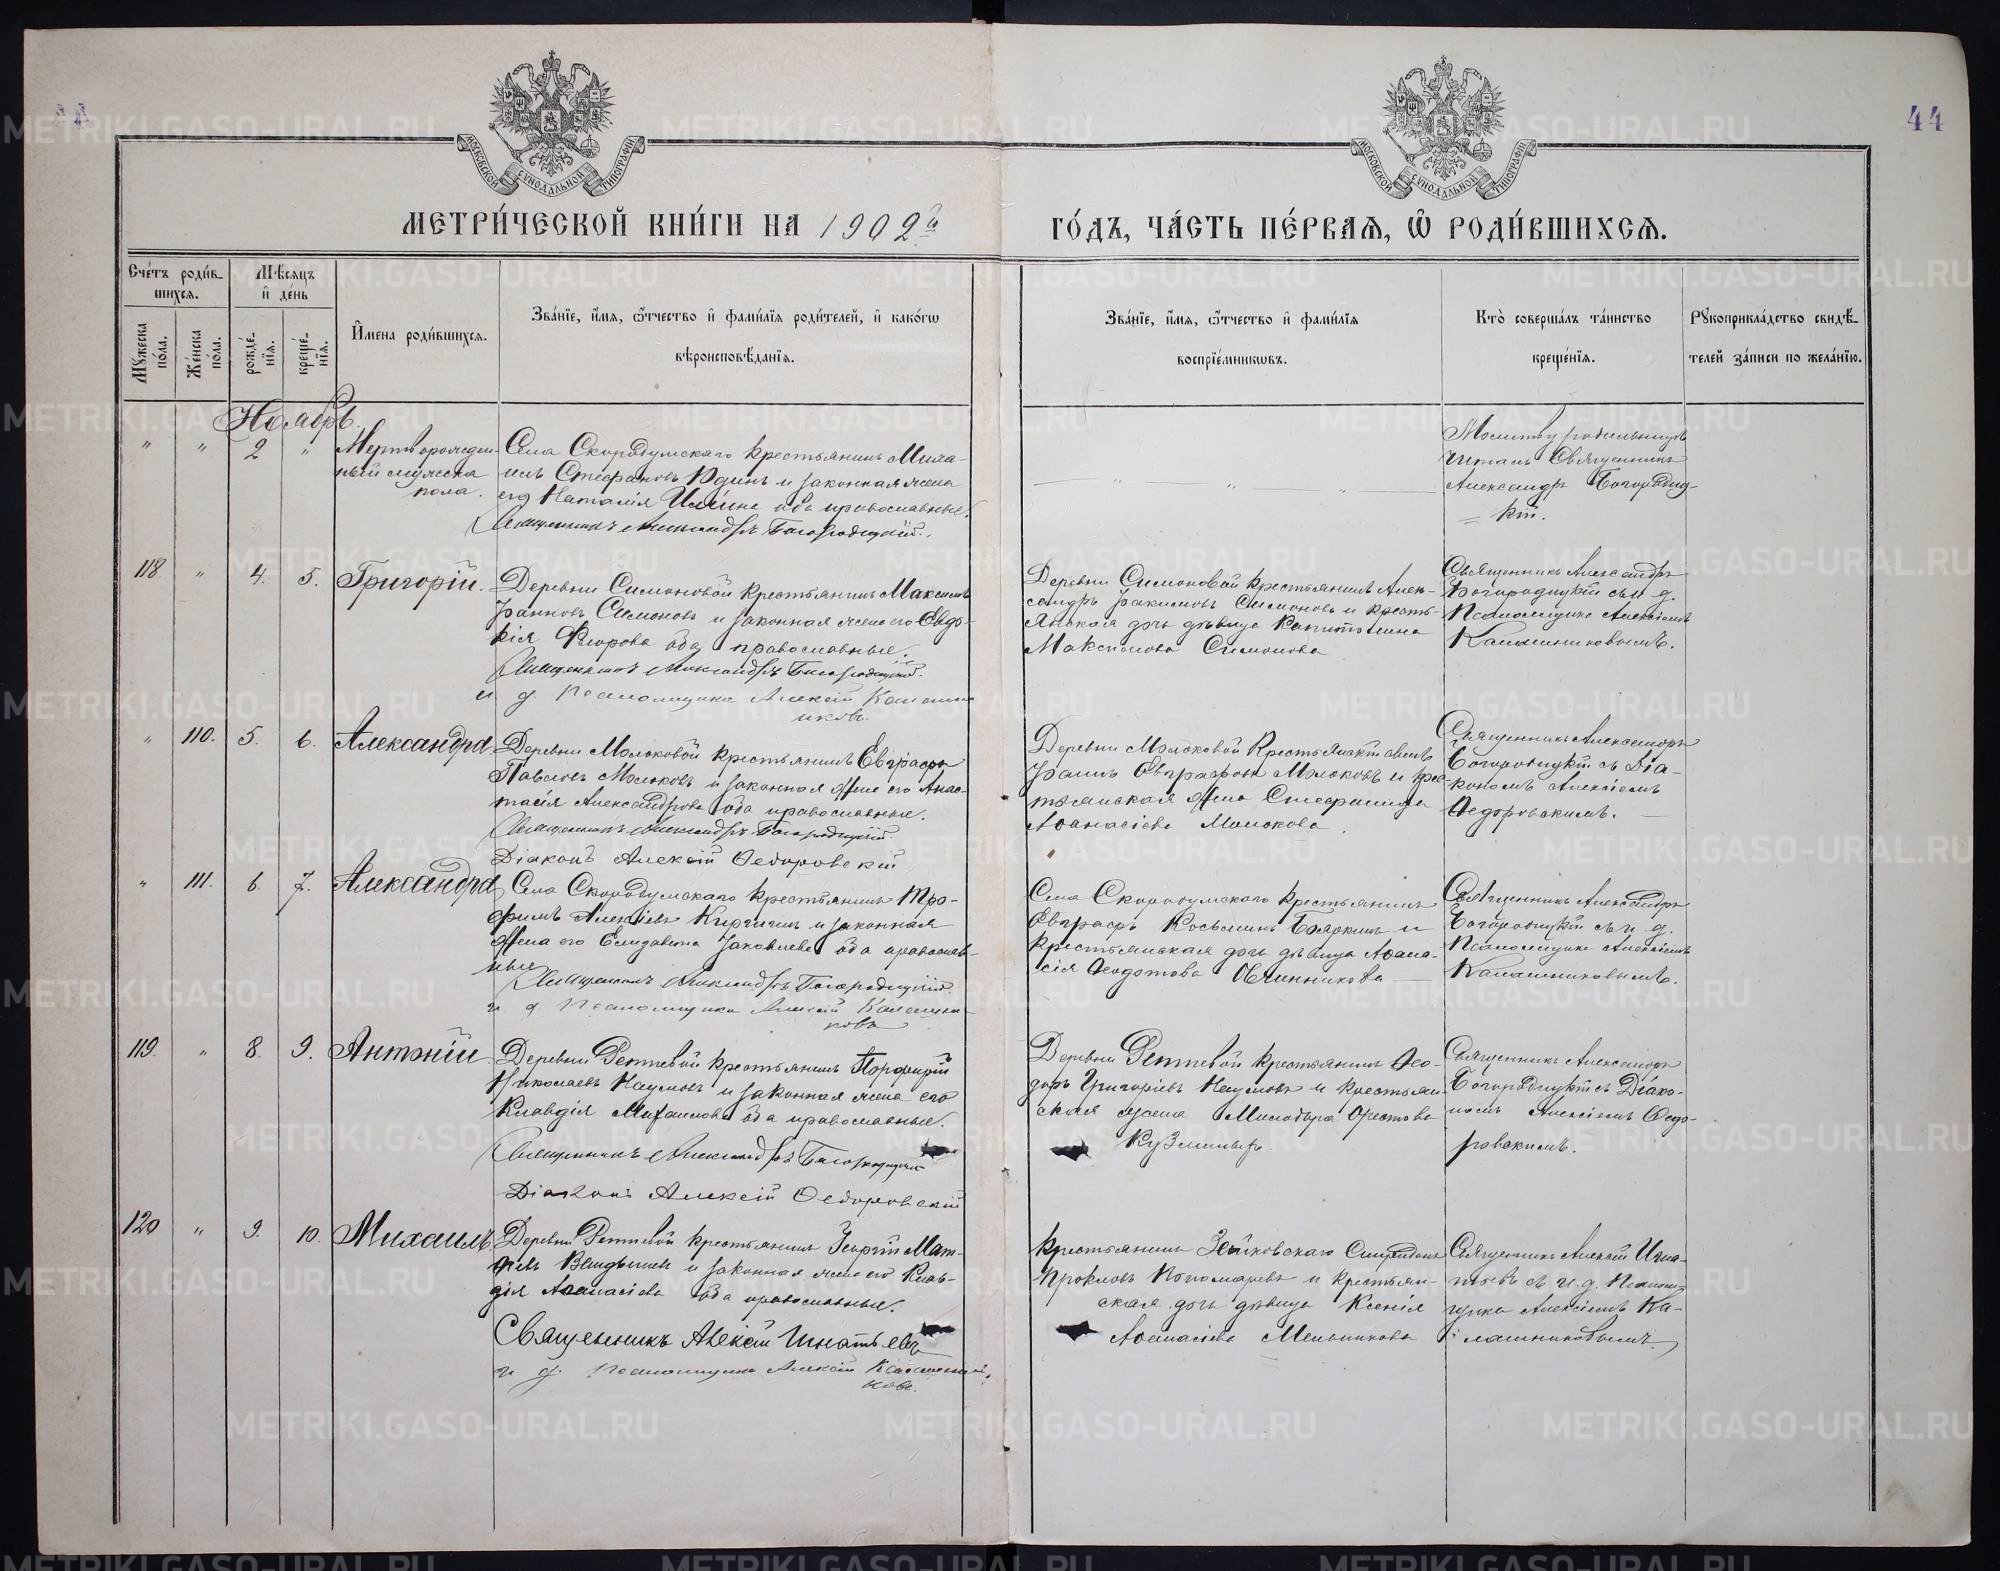 44
МЕТРИ́ЧЕСКОЙ КНИ́ГИ НА 1902й
ГО́ДЪ, ЧА́СТЬ ПЕ́РВАЯ, Ѡ РОДИ́ВШИХСЯ.
МОСКОВСКОЙ СУНОДАЛЬНОЙ ТИПОГРАФІИ
МОСКОВСКОЙ СУНОДАЛЬНОЙ ТИПОГРАФІИ
Сче́тъ роди́в-
шихся.
Мѣ́сяцъ
и де́нь
Мꙋжеска по́ла.
Же́нска по́ла.
рожде́нїя.
креще́нїя.
И҆мена роди́вшихся.
Зва́нїе, и҆́мя, ѻ҆́тчество и҆ фами́лїя роди́телей, и҆ како́гѡ
вѣроисповѣ́данїя.
Зва́нїе, и҆́мя, ѻ҆́тчество и҆ фами́лїя
воспрїе́мникѡвъ.
Кто̀ соверша́лъ та́инство
креще́нїя.
Рꙋкоприкла́дство свидѣ́-
телей за́писи по жела́нїю.
Ноябрь.
" " 2 " Мертворожден-
ный мужеска
пола.
Села Скородумскаго крестьянинъ Миха-
илъ Стефановъ Юдинъ и законная жена
его Наталія Ильина оба православные.
Священникъ Александръ Богородицкій.
Молитву родильницѣ
читалъ Священникъ
Александръ Богородиц-
кій.
118 " 4. 5. Григорій.
Деревни Симоновой крестьянинъ Максимъ
Іоанновъ Симоновъ и законная жена его Евдо-
кія Флорова оба православные.
Священникъ Александръ Богородицкій.
и. д. Псаломщика Алексій Калашни
ковъ.
Деревни Симоновой крестьянинъ Алек-
сандръ Іоакимовъ Симоновъ и кресть-
янская дочь дѣвица Капитолина
Максимова Симонова
Священникъ Александръ
Богородицкій съ и. д.
Псаломщика Алексіемъ
Калашниковымъ.
" 110. 5. 6. Александра
Деревни Молоковой крестьянинъ Евграфъ
Павловъ Молоковъ и законная жена его Анас-
тасія Александрова оба православные.
Священникъ Александръ Богородицкій.
Діаконъ Алексій Ѳедоровскій
Деревни Молоковой Крестьянскій сынъ
Іоаннъ Евграфовъ Молоковъ и крес-
тьянская жена Стефанида
Аѳанасіева Молокова.
Священникъ Александръ
Богородицкій съ Діа-
кономъ Алексіемъ
Ѳедоровскимъ.
" 111. 6. 7. Александра
Села Скородумскаго крестьянинъ Тро-
фимъ Алексіевъ Киргинъ и законная
жена его Елисавета Іаковлева оба православ-
ные
Священникъ Александръ Богородицкій.
и. д. Псаломщика Алексій Калашни-
ковъ
Села Скородумскаго крестьянинъ
Евграфъ Косьминъ Бояркинъ и
крестьянская дочь дѣвица Аѳана-
сія Ѳеодотова Овчинникова
Священникъ Александръ
Богородицкій съ и. д.
Псаломщика Алексіемъ
Калашниковымъ.
119. " 8. 9. Антоній
Деревни Ретневой крестьянинъ Порфирій
Николаевъ Наумовъ и законная жена его
Клавдія Михаилова оба православные.
Священникъ Александръ Богородицкій
Діаконъ Алексій Ѳедоровскій
Деревни Ретневой крестьянинъ Ѳео-
доръ Григоріевъ Наумовъ и крестьян-
ская жена Минодора Орестова
Кузминыхъ.
Священникъ Александръ
Богородицкій съ Діако-
номъ Алексіемъ Ѳедо-
ровскимъ.
120 " 9. 10. Михаилъ
Деревни Ретневой крестьянинъ Георгій Мат-
ѳіевъ и законная жена его Клав-
дія Аѳанасіева оба православные.
Священникъ Алексій Игнатьевъ
и. д. Псаломщика Алексій Калашни-
ковъ.
крестьянинъ Зайковскаго Спиридонъ
Прокловъ Пономаревъ и крестьян-
ская дочь дѣвица Ксенія
Аѳанасіева Мельникова
Священникъ Алексій Игна-
тьевъ съ и. д. Псалом-
щика Алексіемъ Ка-
лашниковымъ.
METRIKI.GASO-URAL.RU